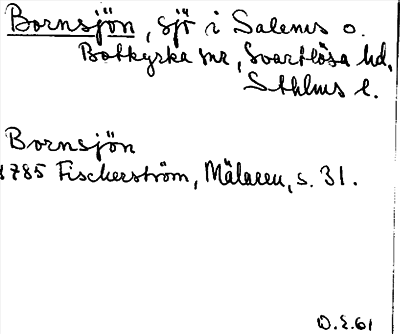 Bornsjön, sjö i Salems o.
Botkyrka snr, Svartlösa hd,
Sthlms l.
Bornsjön
1785 Fischerström, Mälaren, s. 31.
D.E.61